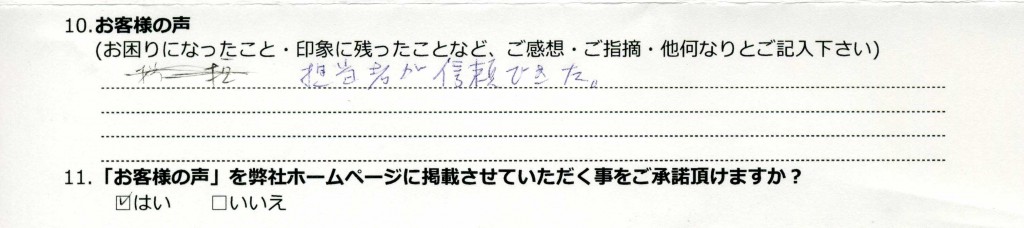 10.お客様の声
(お困りになったこと・印象に残ったことなど、ご感想・ご指摘・他何なりとご記入下さい)
担当者が信頼できた。
11.「お客様の声」を弊社ホームページに掲載させていただく事をご承諾頂けますか？
☑はい □いいえ